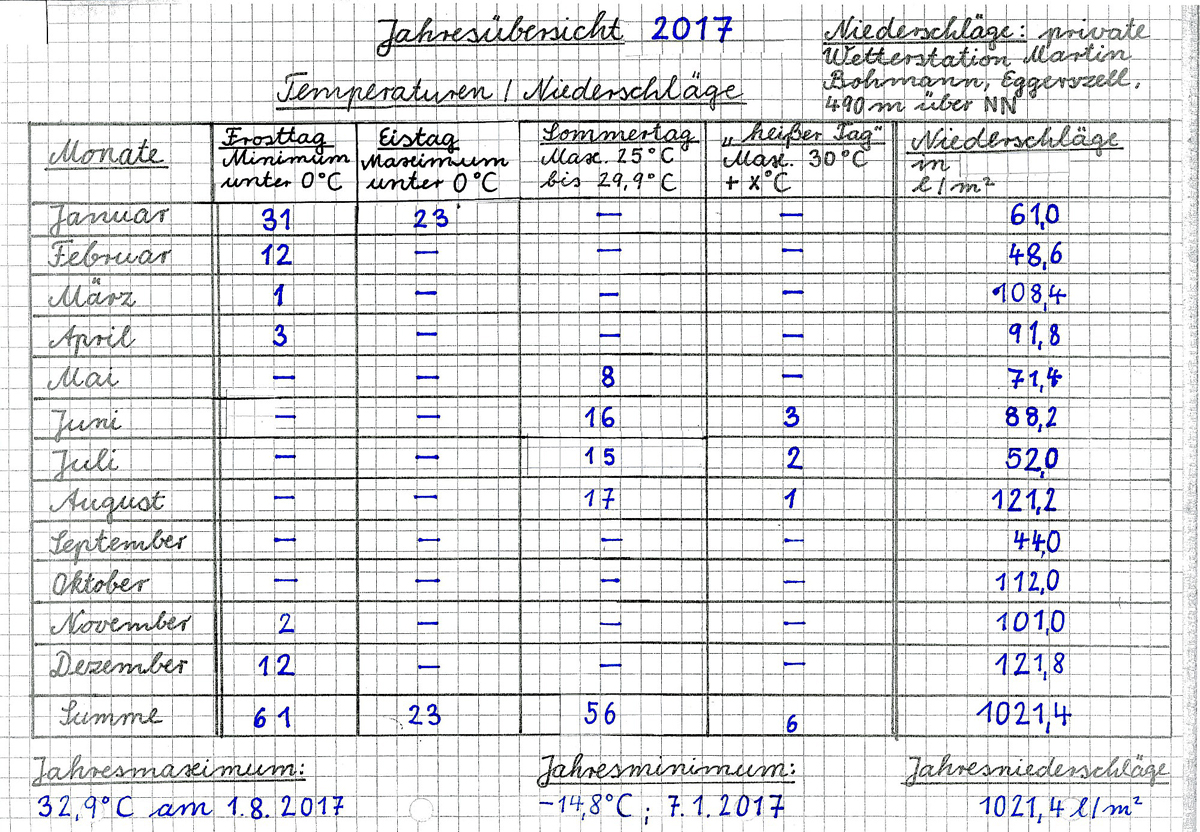 Jahresübersicht 2017
Niederschläge: private
Wetterstation Martin
Bohmann, Eggerszell,
490 m über NN
Temperaturen / Niederschläge
Monate | Frosttag Minimum unter 0°C | Eistag Maximum unter 0°C | Sommertag Max. 25°C bis 29,9°C | „heißer Tag“ Max. 30°C + x°C | Niederschläge in l/m²
Januar 31 23 — — 61,0
Februar 12 — — — 48,6
März 1 — — — 108,4
April 3 — — — 91,8
Mai — — 8 — 71,4
Juni — — 16 3 88,2
Juli — — 15 2 52,0
August — — 17 1 121,2
September — — — — 44,0
Oktober — — — — 112,0
November 2 — — — 101,0
Dezember 12 — — — 121,8
Summe 61 23 56 6 1021,4
Jahresmaximum: Jahresminimum: Jahresniederschläge
32,9°C am 1.8.2017 -14,8°C; 7.1.2017 1021,4 l/m²